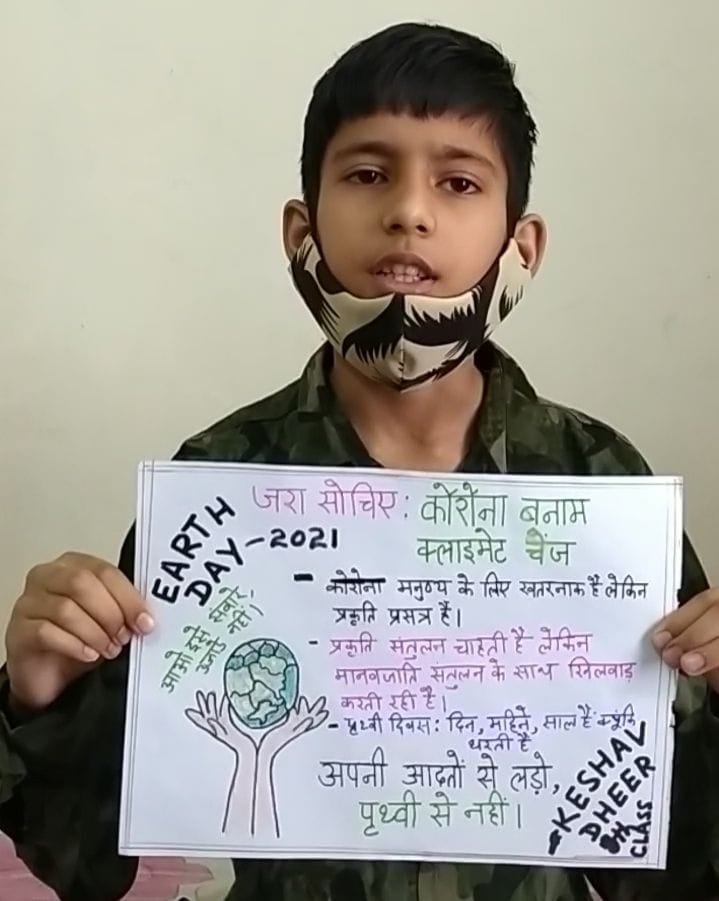 EARTH
DAY-2021
जरा सोचिए: कोरोना बनाम
क्लाइमेट चेंज
- कोरोना मनुष्य के लिए खतरनाक है लेकिन
प्रकृति प्रसन्न है।
- प्रकृति संतुलन चाहती है लेकिन
मानवजाति संतुलन के साथ खिलवाड़
करती रही है।
- पृथ्वी दिवस: दिन, महिने, साल हैं क्यूंकि
धरती है
अपनी आदतों से लड़ो,
पृथ्वी से नहीं।
आओ इसे संवारे,
उजाड़े नहीं।
-KESHAV
DHEER
CLASS